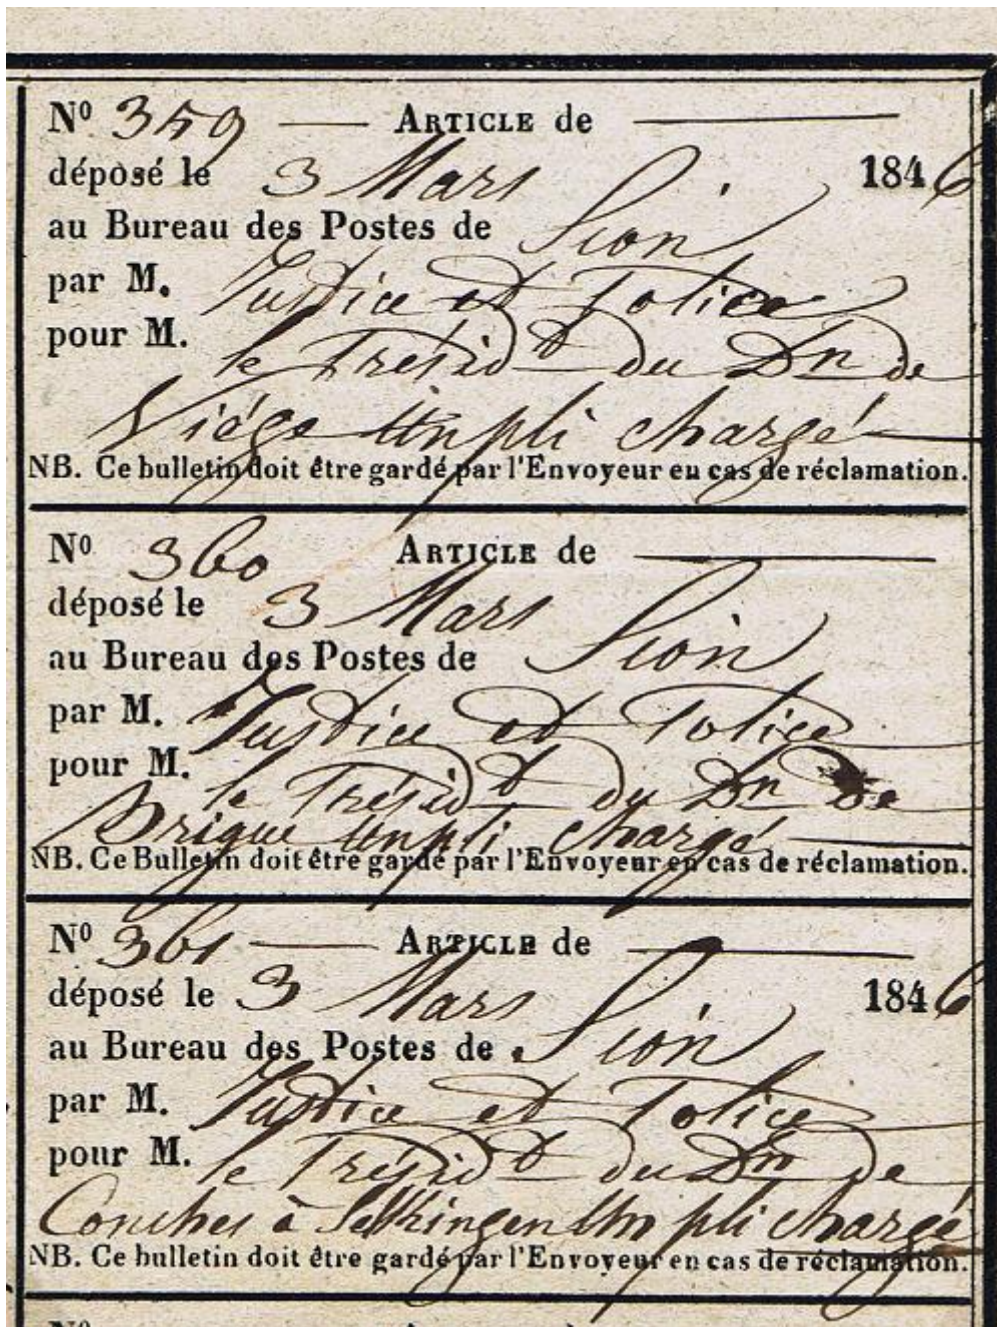 Nº 359 — ARTICLE de —
déposé le 3 Mars 1846
au Bureau des Postes de Sion
par M. Justice et Police
pour M. le Présidt du Dn de
Viége Un pli chargé —
NB. Ce bulletin doit être gardé par l'Envoyeur en cas de réclamation.
Nº 360 ARTICLE de —
déposé le 3 Mars
au Bureau des Postes de Sion
par M. Justice et Police
pour M. le Présidt du Dn de
Brigue Un pli chargé —
NB. Ce Bulletin doit être gardé par l'Envoyeur en cas de réclamation.
Nº 361 — ARTICLE de —
déposé le 3 Mars 1846
au Bureau des Postes de Sion
par M. Justice et Police
pour M. le Présidt du Dn de
Conches à Selkingen Un pli chargé
NB. Ce bulletin doit être gardé par l'Envoyeur en cas de réclamation.